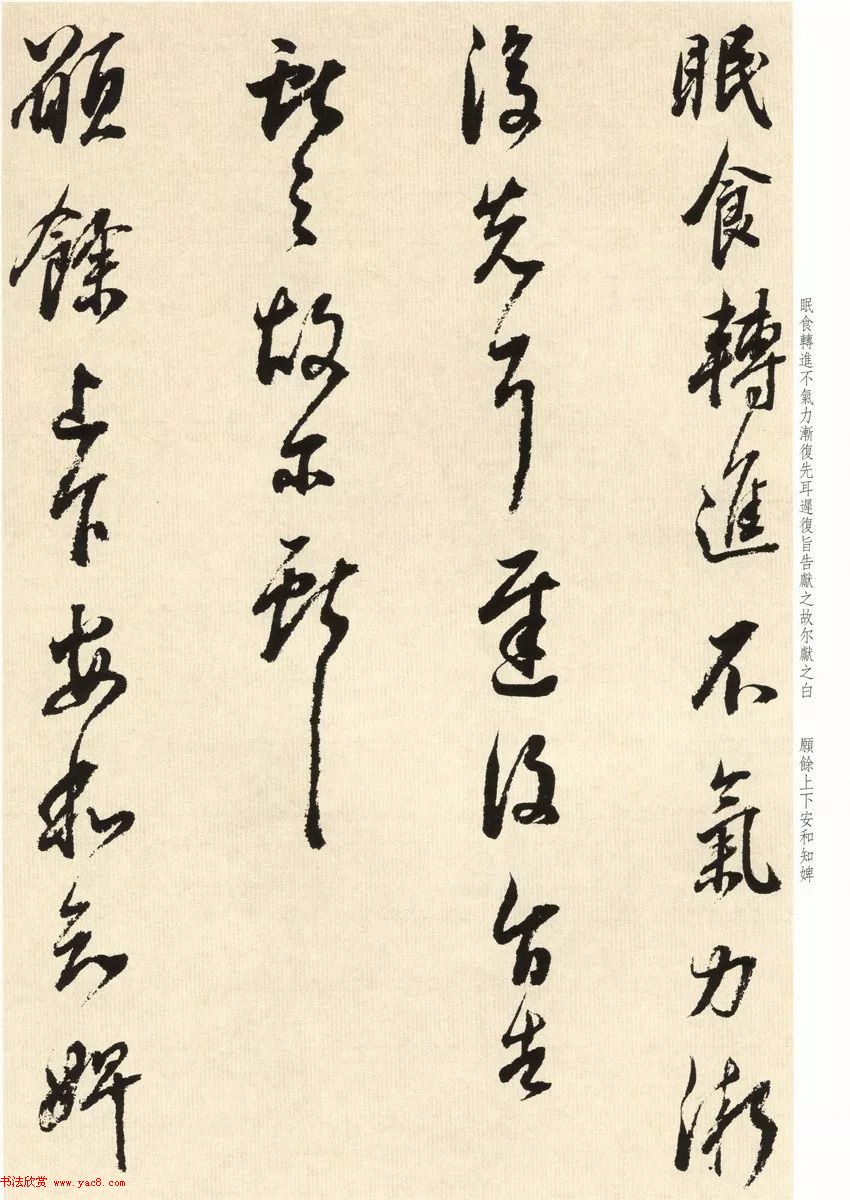 眠食轉進不氣力漸
復先耳遲復旨告
獻之故尔獻
願餘上下安和知婢
眠食轉進不氣力漸復先耳遲復旨告獻之故尔獻之白　願餘上下安和知婢
书法欣赏 www.yac8.com